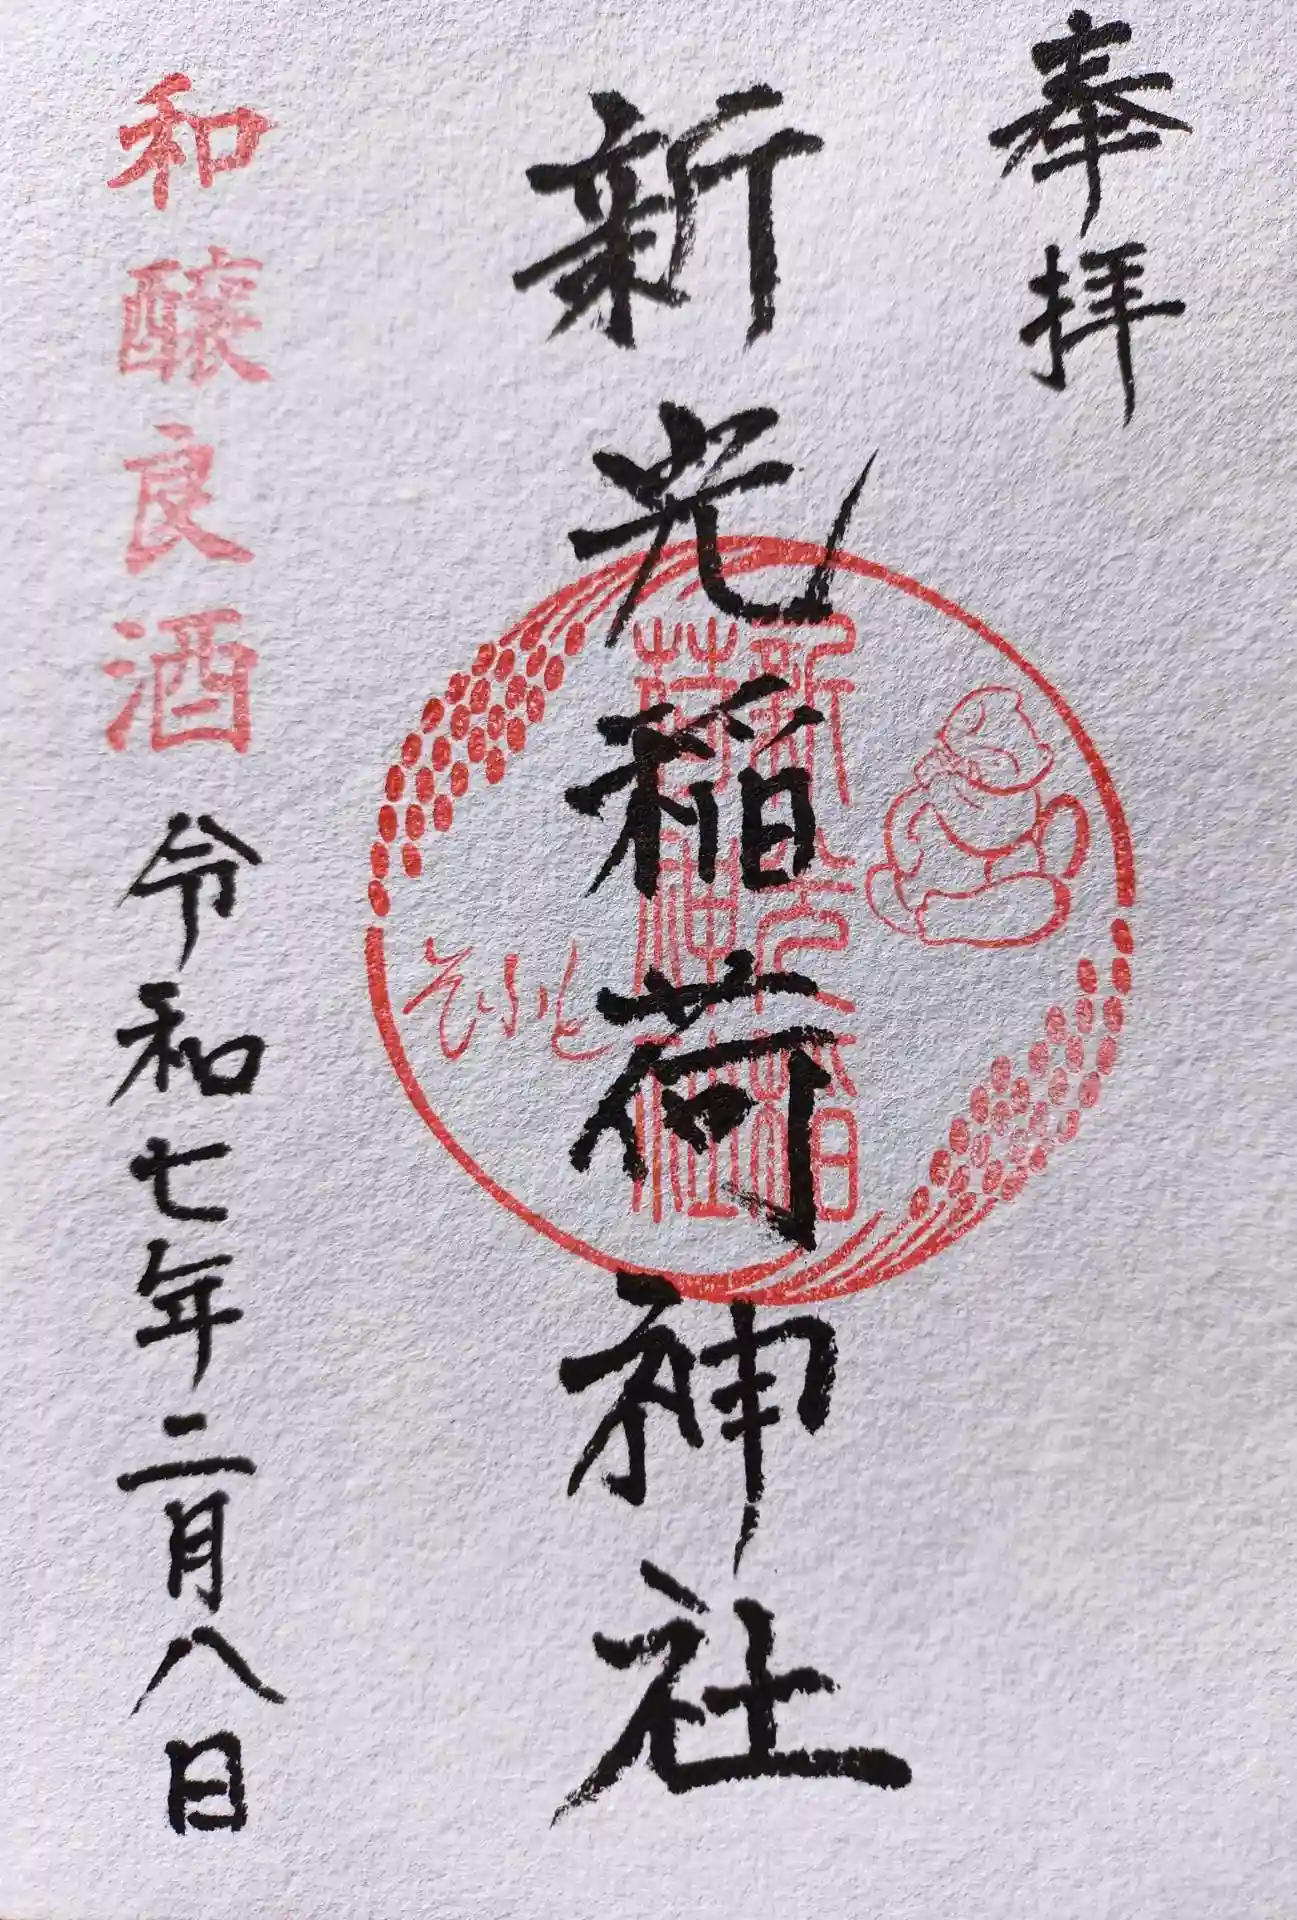 奉拝
新光稲荷神社
新光稲
荷神社
和醸良酒
令和七年二月八日